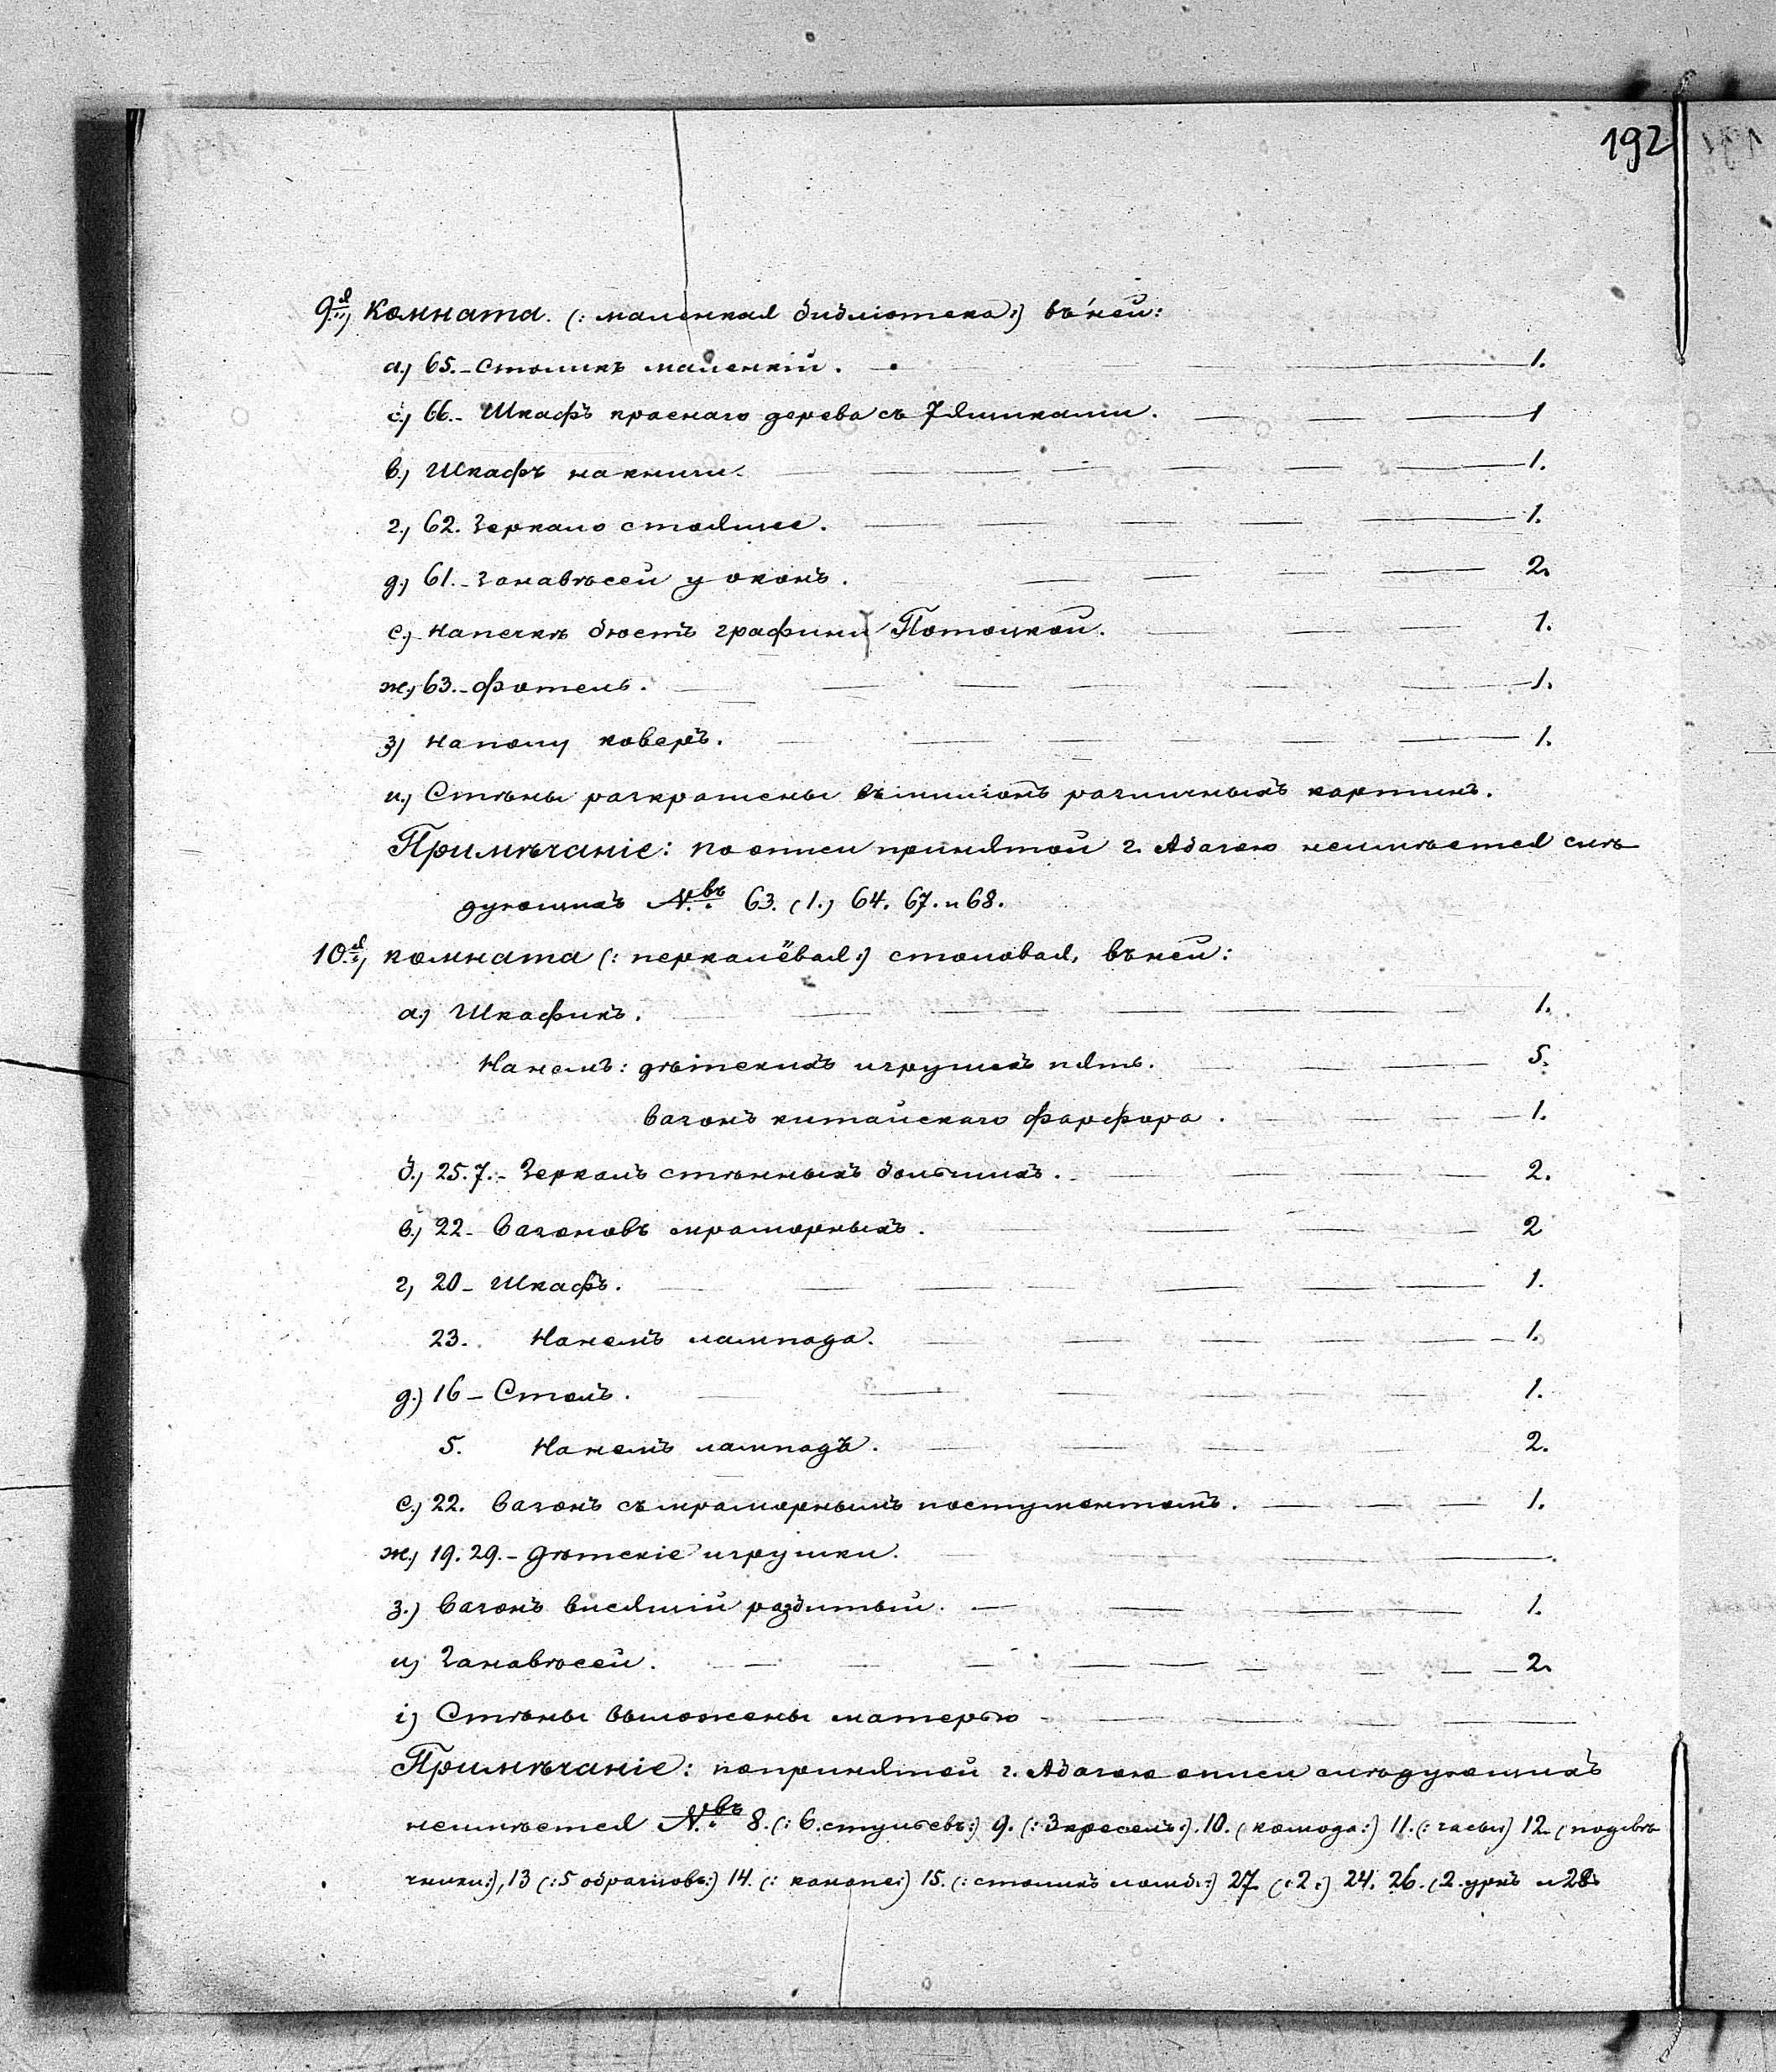 192
9.я, Комната. (: маленкая библіотека :) въ ней:
а.) 65.- Столикъ маленкій. 1.
б.) 66.- Шкафъ краснаго дерева съ 7 ящиками. 1
в.) Шкафъ на книги. 1.
г.) 62. Зеркало стоящее. 1.
д.) 61.- Занавѣсей у оконъ. 2.
е.) На печкѣ бюстъ графини Потоцкой. 1.
ж.) 63.- Фотель. 1.
з) На полу коверъ. 1.
и.) Стѣны раскрашены различныхъ картинъ.
Примѣчаніе: по описи принятой г. Абазою неимѣется слѣ
дующихъ N.въ 63. (1.) 64. 67. и 68.
10.я, комната (: перкалёвая :) столовая, въ ней:
а.) Шкафикъ. 1.
На немъ: дѣтскихъ игрушекъ пять. 5.
Вазонъ китайскаго фарфора. 1.
б.) 25.7.- Зеркалъ стѣнныхъ большихъ. 2.
в.) 22- Вазоновъ мраморныхъ. 2
г) 20- Шкафъ. 1.
23. На немъ лампада. 1.
д.) 16- Столъ. 1.
5. На немъ лампадъ. 2.
е.) 22. Вазонъ съ мраморнымъ постументомъ. 1.
ж.) 19. 29.- Дѣтскіе игрушки.
з.) Вазонъ висящій разбитый. 1.
и) Занавѣсей. 2.
і) Стѣны выложены матерью
Примѣчаніе: по принятой г. Абазою описи слѣдующихъ
неимѣется N.въ 8. (: 6. стульевъ :) 9. (: 3 креселъ :). 10. (комода :) 11. (: часы :) 12. (подсвѣ
чники :), 13 (: 5 образцовъ :) 14. (: канапе :) 15. (: столикъ ломб. :) 27. (: 2 :) 24. 26. (2. урнъ и 28.